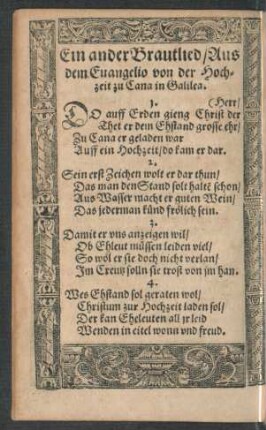 Ein ander Brautlied/Aus
dem Euangelio von der Hoch-
zeit zu Cana in Galilea.
1. (Herr/
DO auff Erden gieng Christ der
Thet er dem Ehstand grosse ehr/
Zu Cana er geladen war
Auff ein Hochzeit/do kam er dar.
2.
Sein erst Zeichen wolt er dar thun/
Das man den Stand solt haltē schon/
Aus Wasser macht er guten Wein/
Das jederman künd frölich sein.
3.
Damit er vns anzeigen wil/
Ob Ehleut müssen leiden viel/
So wöl er sie doch nicht verlan/
Im Creutz solln sie trost von jm han.
4.
Wes Ehstand sol geraten wol/
Christum zur Hochzeit laden sol/
Der kan Eheleuten all jr leid
Wenden in eitel wonn vnd freud.